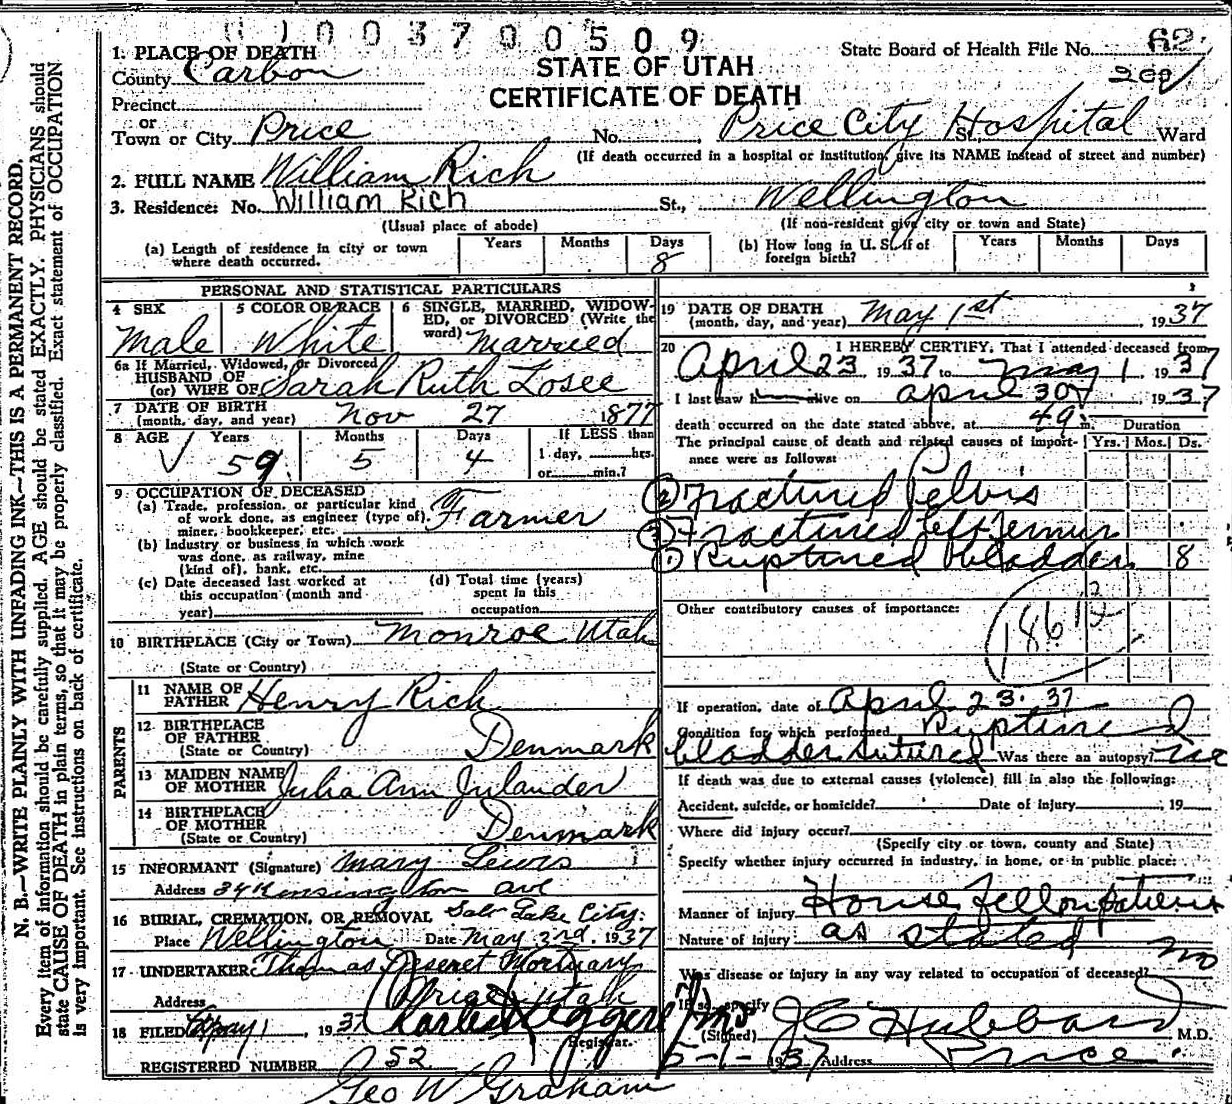 0 1 0 0 3 7 9 0 0 5 0 9
State Board of Health File No. 62
STATE OF UTAH
CERTIFICATE OF DEATH
1. PLACE OF DEATH
County Carbon
Precinct
or
Town or City Price No. Price City Hospital St. Ward
(If death occurred in a hospital or institution, give its NAME instead of street and number)
2. FULL NAME William Rich
3. Residence: No. William Rich St., Wellington
(Usual place of abode) (If non-resident give city or town and State)
(a) Length of residence in city or town where death occurred. Years Months Days 8
(b) How long in U. S. if of foreign birth? Years Months Days
PERSONAL AND STATISTICAL PARTICULARS
4 SEX Male
5 COLOR OR RACE White
6 SINGLE, MARRIED, WIDOWED, or DIVORCED (Write the word) Married
6a If Married, Widowed, or Divorced
HUSBAND OF
(or) WIFE OF Sarah Ruth Losee
7 DATE OF BIRTH
(month, day, and year) Nov 27 1877
8 AGE Years 59 Months 5 Days 4
If LESS than
1 day, hrs.
or min.?
9 OCCUPATION OF DECEASED
(a) Trade, profession, or particular kind
of work done, as engineer (type of),
miner, bookkeeper, etc. Farmer
(b) Industry or business in which work
was done, as railway, mine
(kind of), bank, etc.
(c) Date deceased last worked at
this occupation (month and
year)
(d) Total time (years)
spent in this
occupation
10 BIRTHPLACE (City or Town) Monroe Utah
(State or Country)
PARENTS
11 NAME OF
FATHER Henry Rich
12 BIRTHPLACE
OF FATHER
(State or Country) Denmark
13 MAIDEN NAME
OF MOTHER Julia Ann Julander
14 BIRTHPLACE
OF MOTHER
(State or Country) Denmark
15 INFORMANT (Signature) Mary Lewis
Address 34 Kensington ave
16 BURIAL, CREMATION, OR REMOVAL Salt Lake City
Place Wellington Date May 3rd. 1937
17 UNDERTAKER Thomas Deseret Mortuary
Address Price Utah
18 FILED May 1, 1937
Registrar.
REGISTERED NUMBER 52
Geo W Graham
19 DATE OF DEATH
(month, day, and year) May 1st 1937
20 I HEREBY CERTIFY, That I attended deceased from
April 23, 1937 to May 1, 1937
I last saw h alive on April 30, 1937
death occurred on the date stated above, at m. Duration
The principal cause of death and related causes of importance were as follows: Yrs. Mos. Ds.
② Fractured Pelvis
③ Fractured left femur
① Ruptured bladder 8
Other contributory causes of importance:
If operation, date of April 23. 37
Condition for which performed Ruptured
bladder sutured Was there an autopsy?
If death was due to external causes (violence) fill in also the following:
Accident, suicide, or homicide? Date of injury , 19
Where did injury occur?
(Specify city or town, county and State)
Specify whether injury occurred in industry, in home, or in public place:
Manner of injury House fell on patient
Nature of injury as stated
Was disease or injury in any way related to occupation of deceased? no
If so, specify
(Signed) J C Hubbard M.D.
5-1-1937 Address Price
N. B.—WRITE PLAINLY WITH UNFADING INK—THIS IS A PERMANENT RECORD.
Every item of information should be carefully supplied. AGE should be stated EXACTLY. PHYSICIANS should
state CAUSE OF DEATH in plain terms, so that it may be properly classified. Exact statement of OCCUPATION
is very important. See instructions on back of certificate.